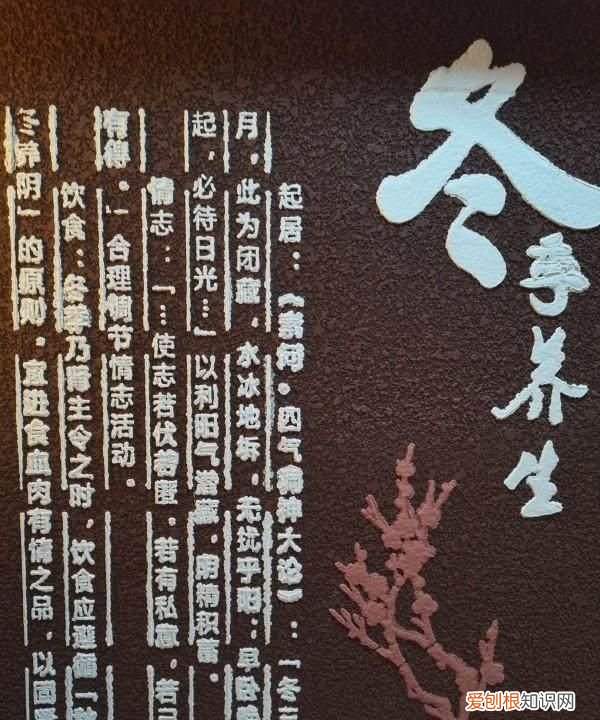 冬季养生
起居：《素问·四气调神大论》：「冬三
月，此为闭藏，水冰地坼，无扰乎阳；早卧晚
起，必待日光…」以利阳气潜藏，阴精积蓄。
情志：「…使志若伏若匿，若有私意，若已
有得。」合理调节情志活动。
饮食：冬季乃肾主令之时，饮食应遵循「秋
冬养阴」的原则，宜进食血肉有情之品，以固
爱刨根知识网